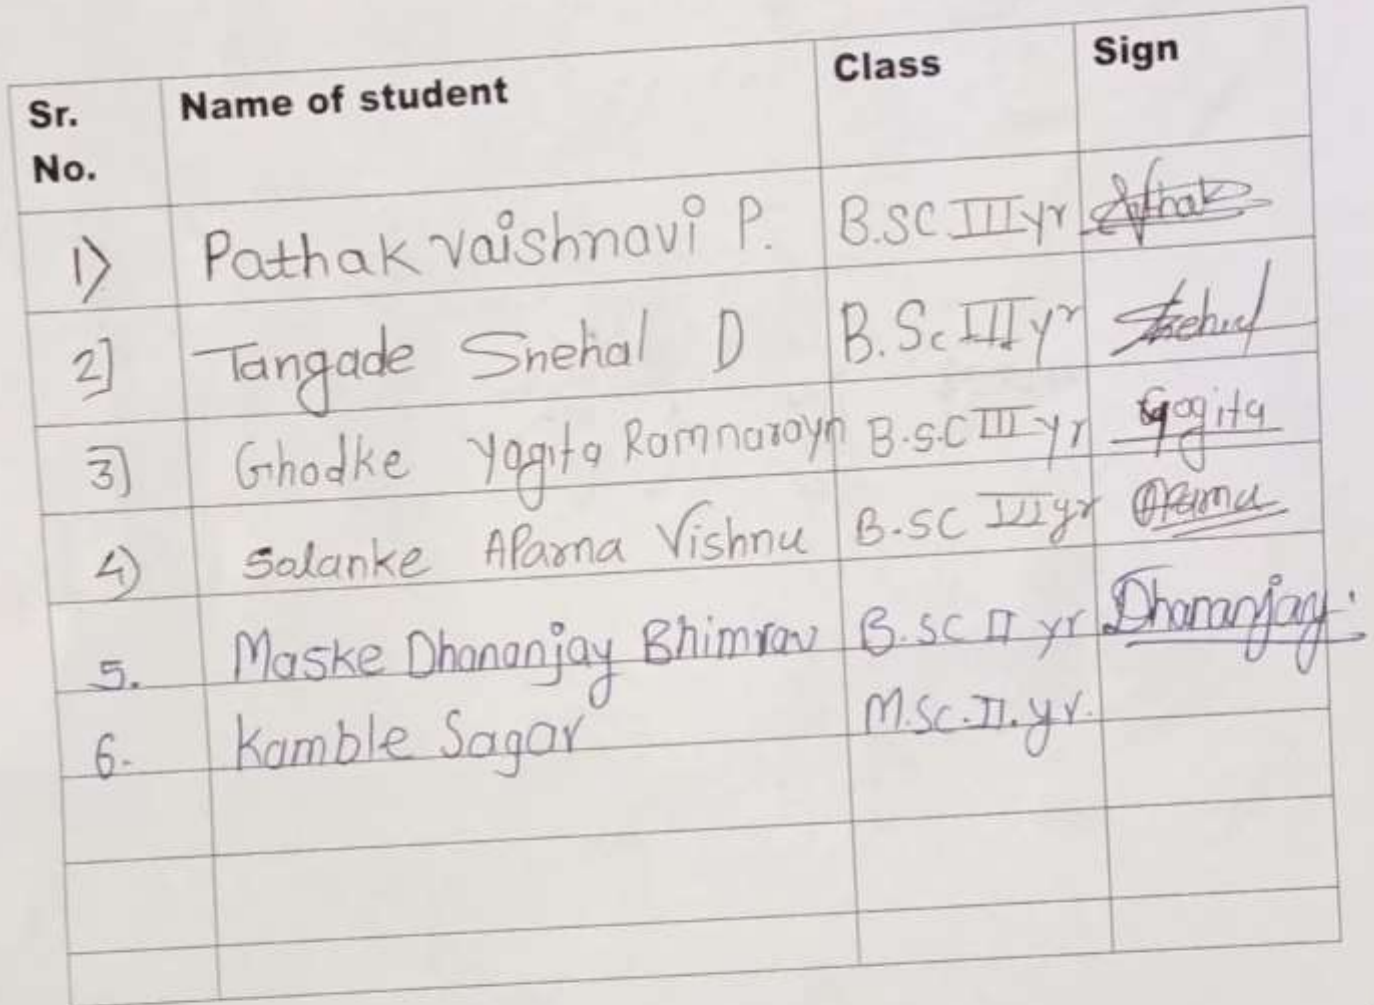 Sr. No. Name of student Class Sign
1) Pathak Vaishnavi P. B.SC III yr
2] Tangade Snehal D B.Sc III yr Snehal
3] Ghodke Yogita Ramnarayn B.S.C III yr Yogita
4) Solanke AParna Vishnu B.SC III yr AParna
5. Maske Dhananjay Bhimrav B.SC II yr Dhananjay.
6. Kamble Sagar M.SC.II.yr.